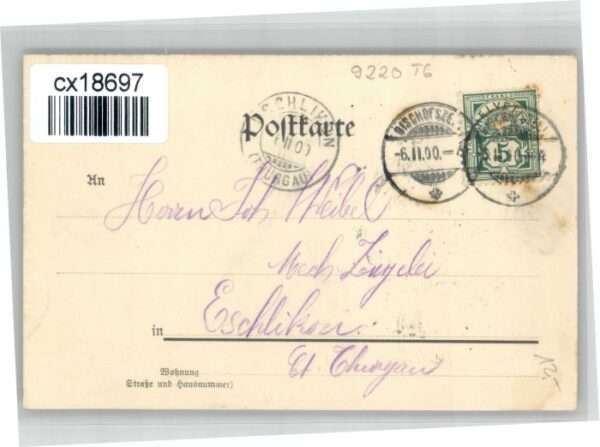 cx18697
9220 TG
Postkarte
ESCHLIKON
(THURGAU)
BISCHOFSZELL
-6.11.00.-
5
An
Herrn Joh. Weibel
Mech.
in Eschlikon
Ct. Thurgau
Wohnung
(Straße und Hausnummer)
12.-